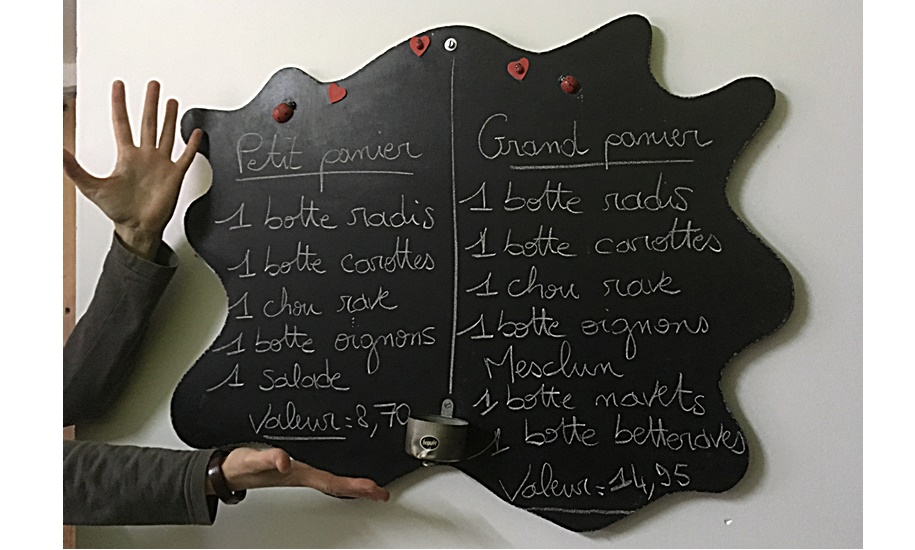 Petit panier
1 botte radis
1 botte carottes
1 chou rave
1 botte oignons
1 salade
Valeur = 8,70
Grand panier
1 botte radis
1 botte carottes
1 chou rave
1 botte oignons
Mesclun
1 botte navets
1 botte betteraves
Valeur = 14,95